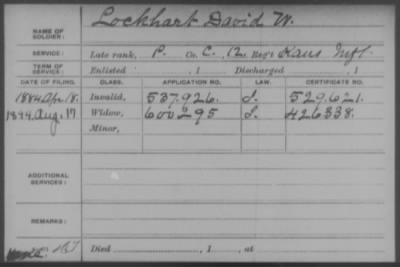 Lockhart David W.
NAME OF SOLDIER:
SERVICE: Late rank, P. Co. C, 12 Reg't Kans Inft.
TERM OF SERVICE: Enlisted , 1 Discharged , 1
DATE OF FILING. CLASS. APPLICATION NO. LAW. CERTIFICATE NO.
1884 Apr 18. Invalid, 537.926. J. 529.621.
1894 Aug. 17 Widow, 600295 J. 426338.
Minor,
ADDITIONAL SERVICES:
REMARKS:
Died , 1 , at